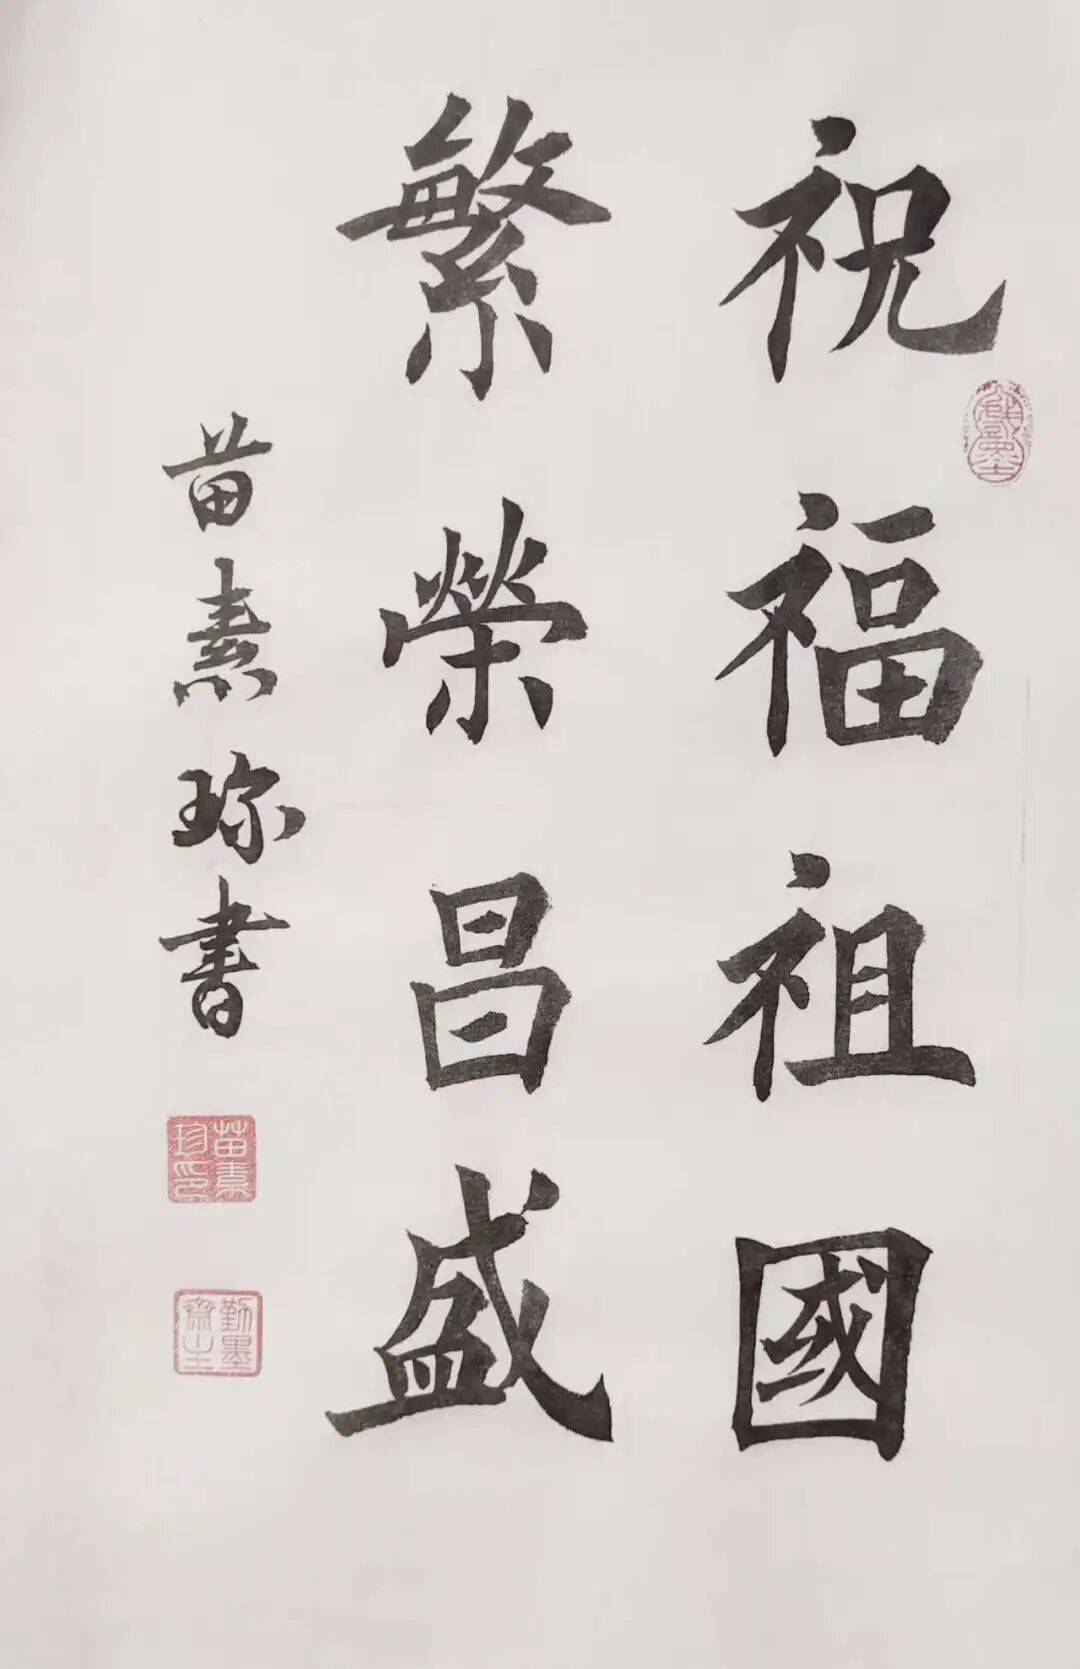 祝福祖國
繁榮昌盛
苗素珎書
苗素珍印
勤墨齋主